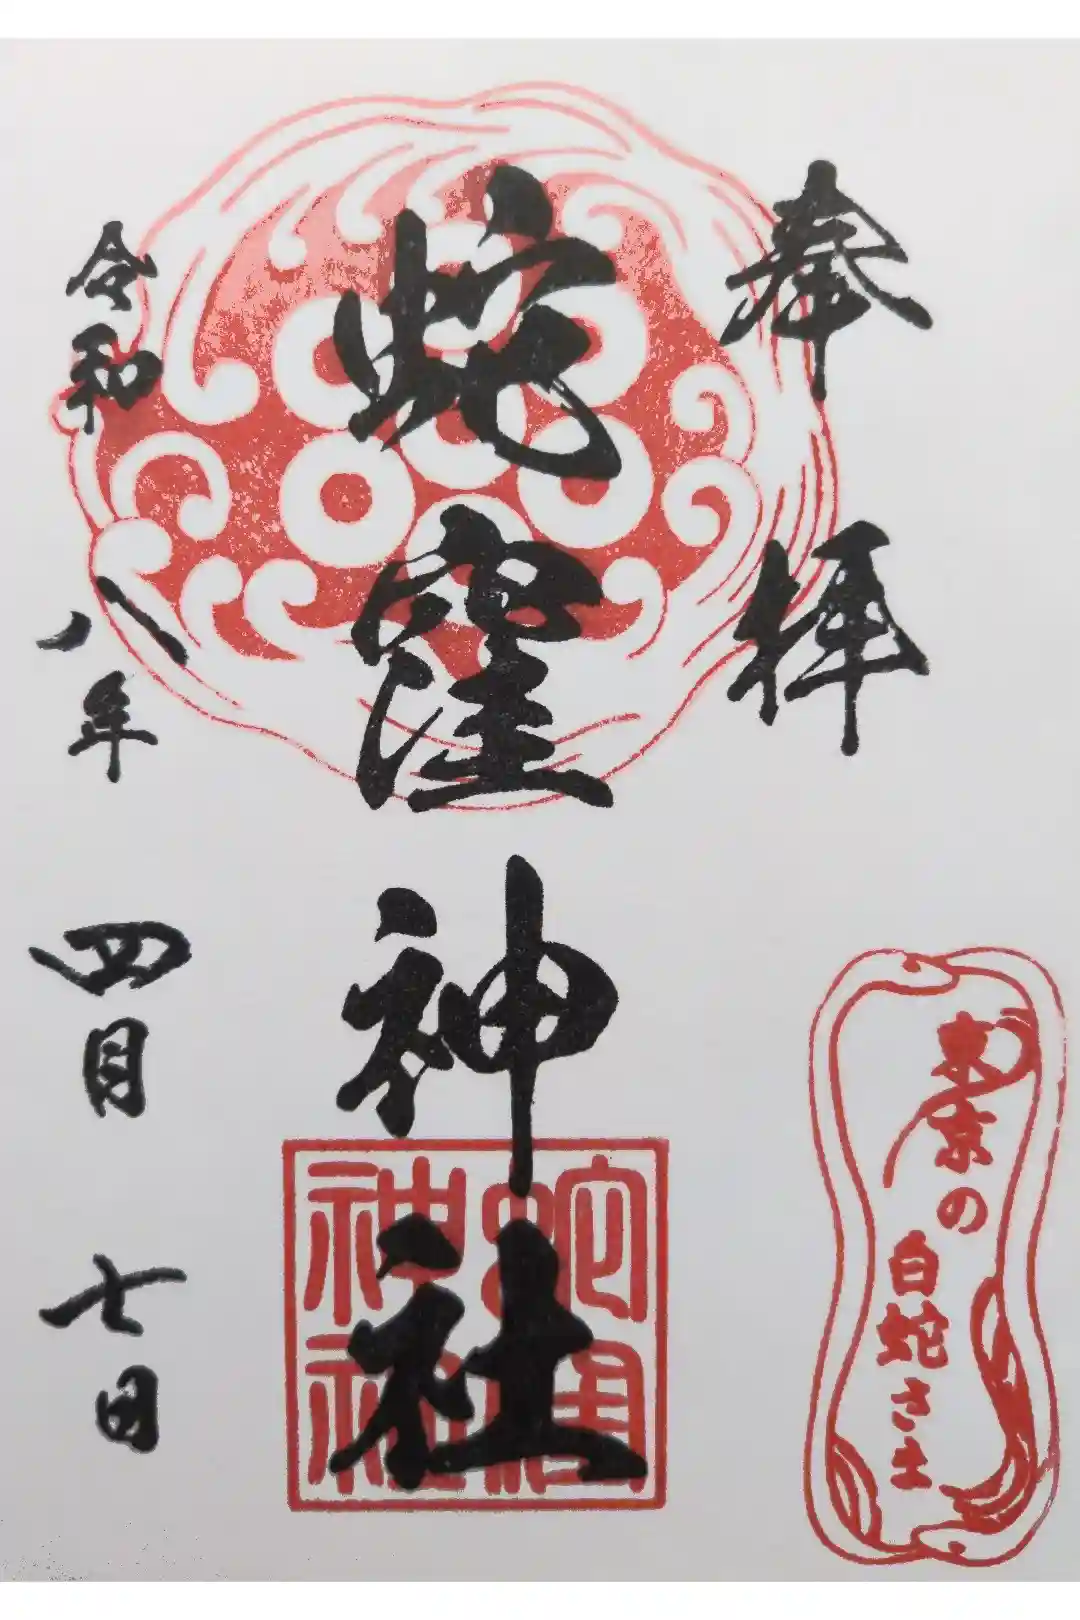 奉拝
蛇窪神社
令和八年四月七日
東京の
白蛇さま
蛇窪
神社